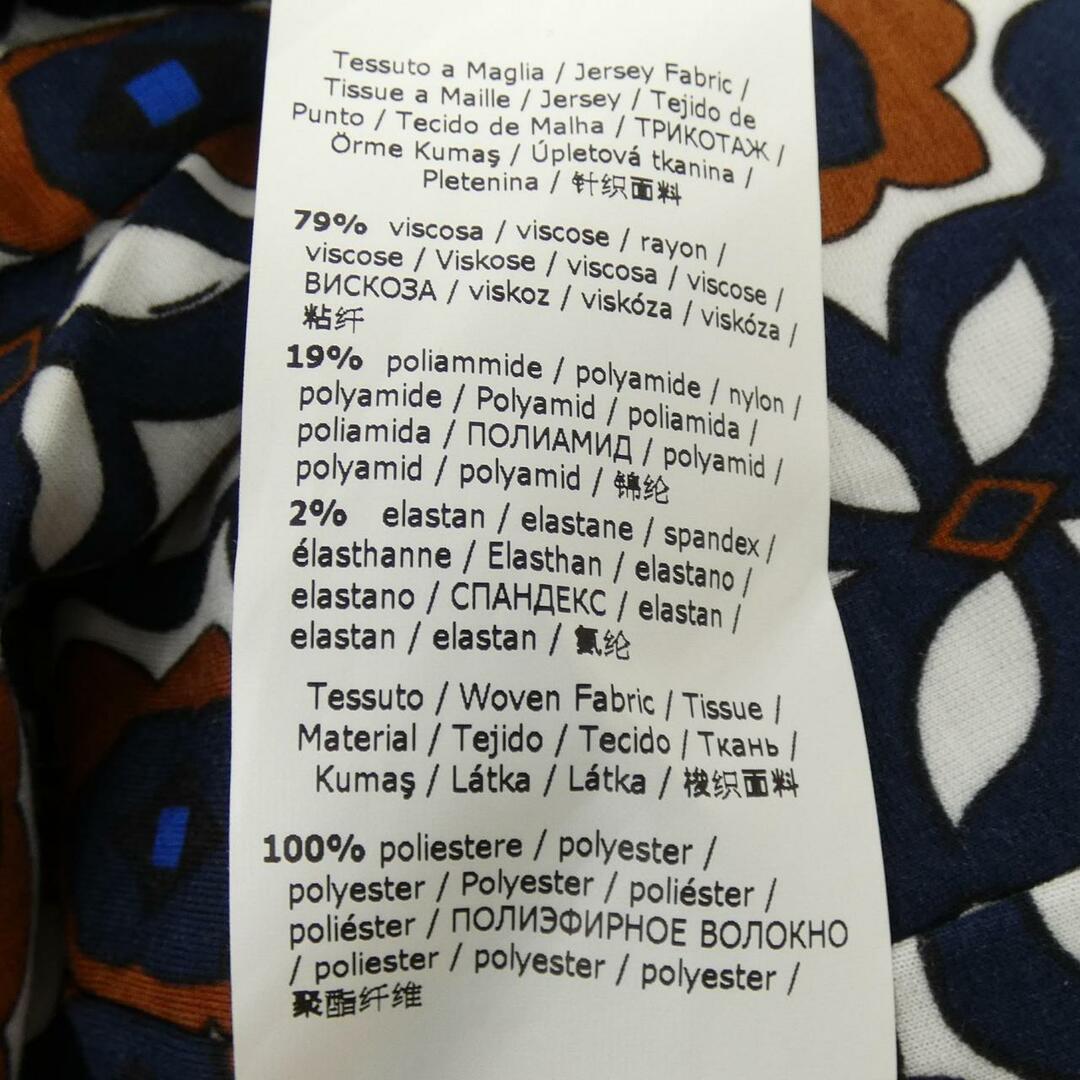 Tessuto a Maglia / Jersey Fabric /
Tissue a Maille / Jersey / Tejido de
Punto / Tecido de Malha / ТРИКОТАЖ /
Örme Kumaş / Úpletová tkanina /
Pletenina / 针织面料
79% viscosa / viscose / rayon /
viscose / Viskose / viscosa / viscose /
ВИСКОЗА / viskoz / viskóza / viskóza /
粘纤
19% poliammide / polyamide / nylon /
polyamide / Polyamid / poliamida /
poliamida / ПОЛИАМИД / polyamid /
polyamid / polyamid / 锦纶
2% elastan / elastane / spandex /
élasthanne / Elasthan / elastano /
elastano / СПАНДЕКС / elastan /
elastan / elastan / 氨纶
Tessuto / Woven Fabric / Tissue /
Material / Tejido / Tecido / Ткань /
Kumaş / Látka / Látka / 梭织面料
100% poliestere / polyester /
polyester / Polyester / poliéster /
poliéster / ПОЛИЭФИРНОЕ ВОЛОКНО
/ poliester / polyester / polyester /
聚酯纤维